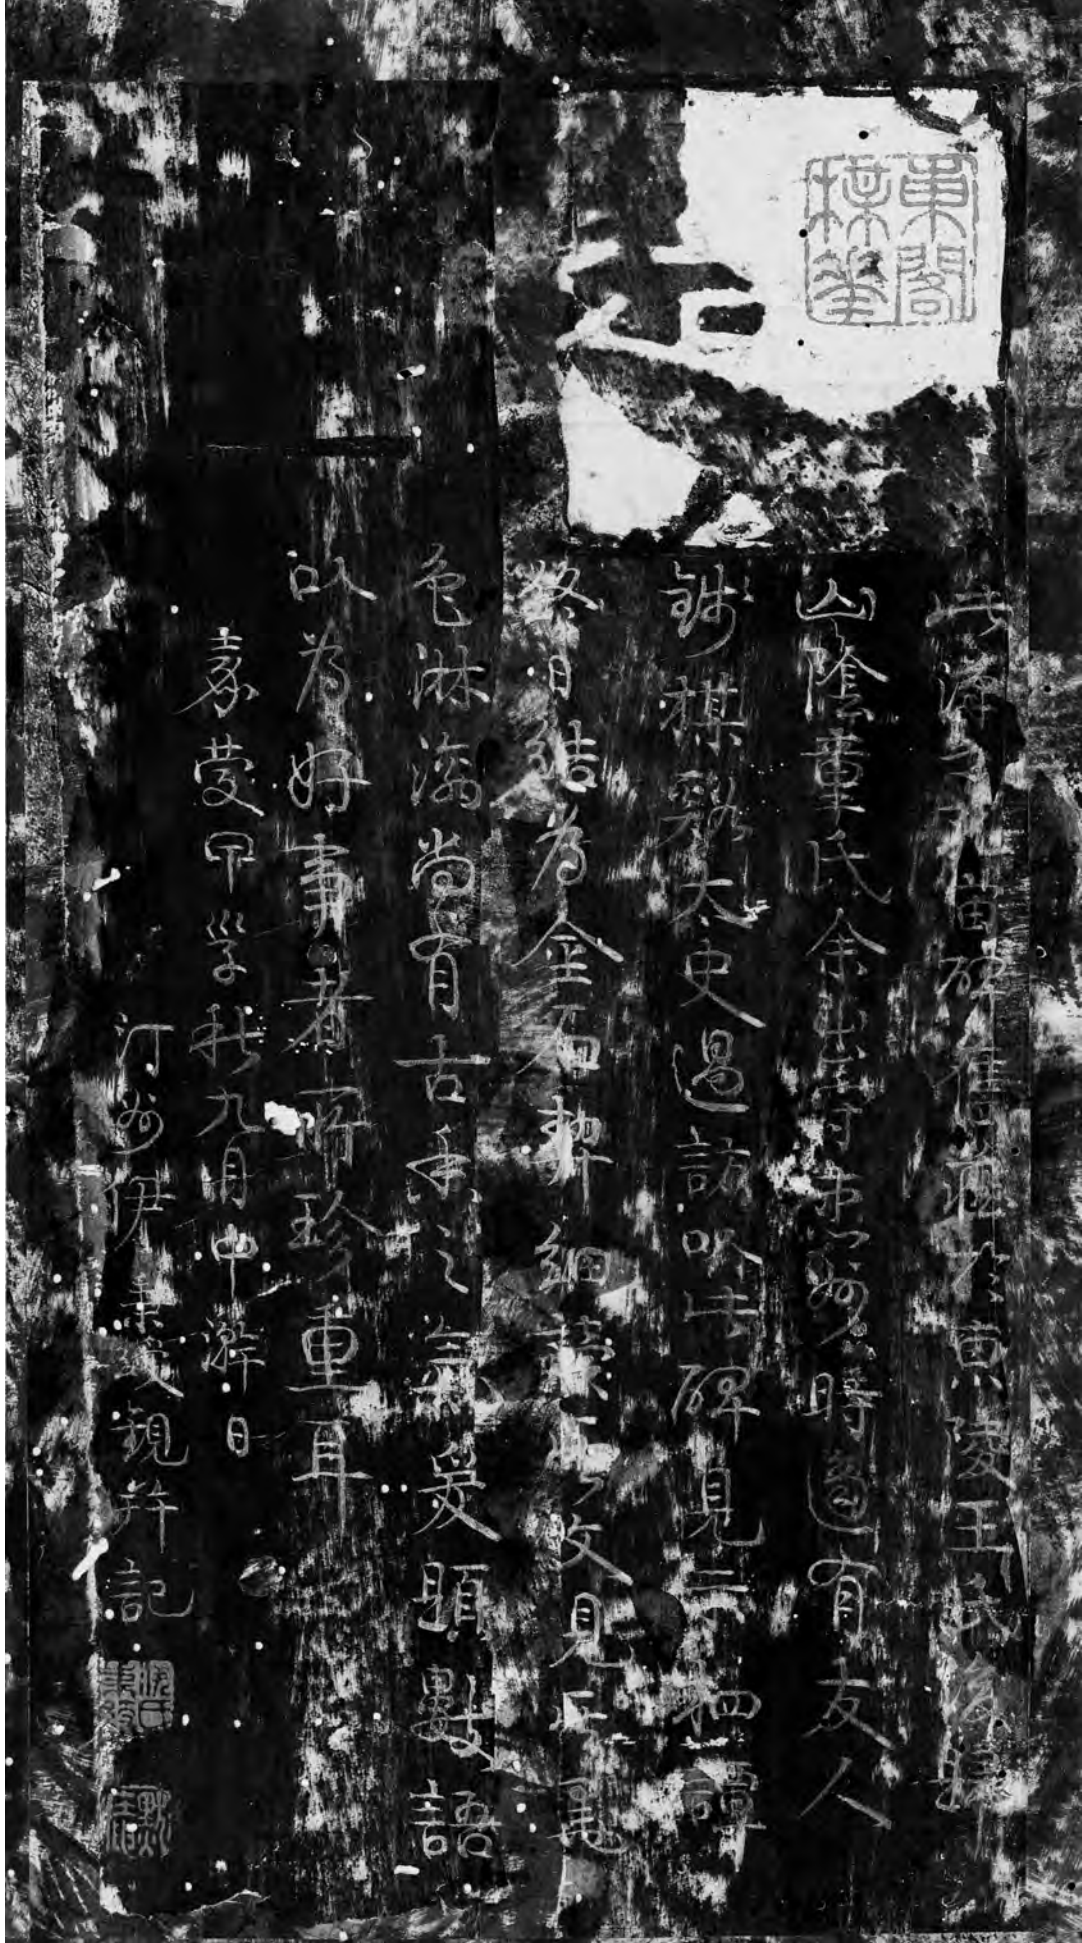 東閣
梅華
此漢孔宙碑舊藏於黃陵王氏後歸
山陰童氏余出守惠州時適有友人
錢棋谿太史過訪以此碑見示相譚
終日結為金石契細讀此文見其墨
色淋漓尚有古香之氣爰題數語
以為好事者而珍重耳
嘉慶甲子秋九月中澣日
汀州伊秉綬觀并記